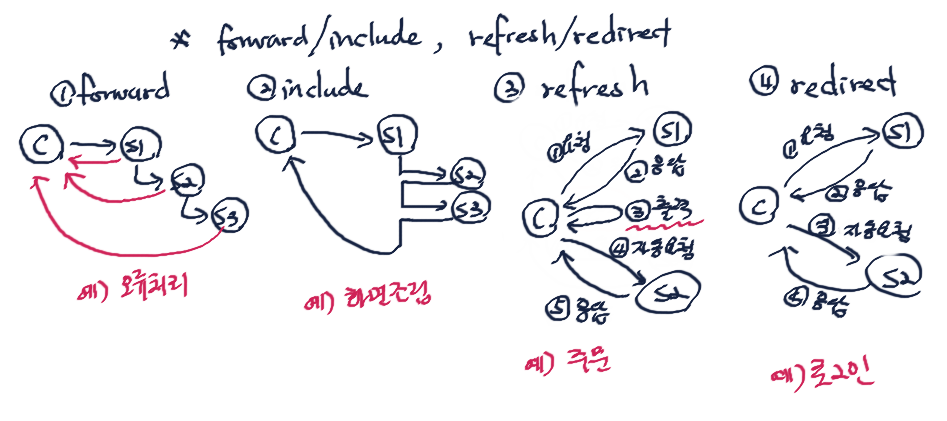 * forward/include, refresh/redirect
① forward
C
S1
S2
S3
예) 오류처리
② include
C
S1
S2
S3
예) 화면조립
③ refresh
S1
① 요청
② 응답
C
③ 출력
④ 자동요청
S2
⑤ 응답
예) 주문
④ redirect
S1
① 요청
② 응답
C
③ 자동요청
S2
④ 응답
예) 로그인